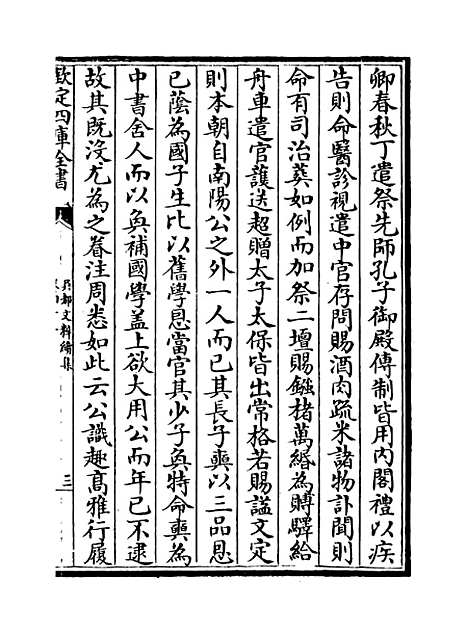 卿春秋丁遣祭先師孔子御殿傳制皆用内閣禮以疾
告則命醫診視遣中官存問賜酒肉疏米諸物訃聞則
命有司治葬如例而加祭二壇賜鏹楮萬緡為賻驛給
舟車遣官護送超贈太子太保皆出常格若賜諡文定
則本朝自南陽公之外一人而已其長子奭以三品恩
已蔭為國子生比以舊學恩當官其少子奐特命奭為
中書舍人而以奐補國學盖上欲大用公而年已不逮
故其既沒尤為之眷注周悉如此云公識趣高雅行履
欽定四庫全書
明文衡續集
三